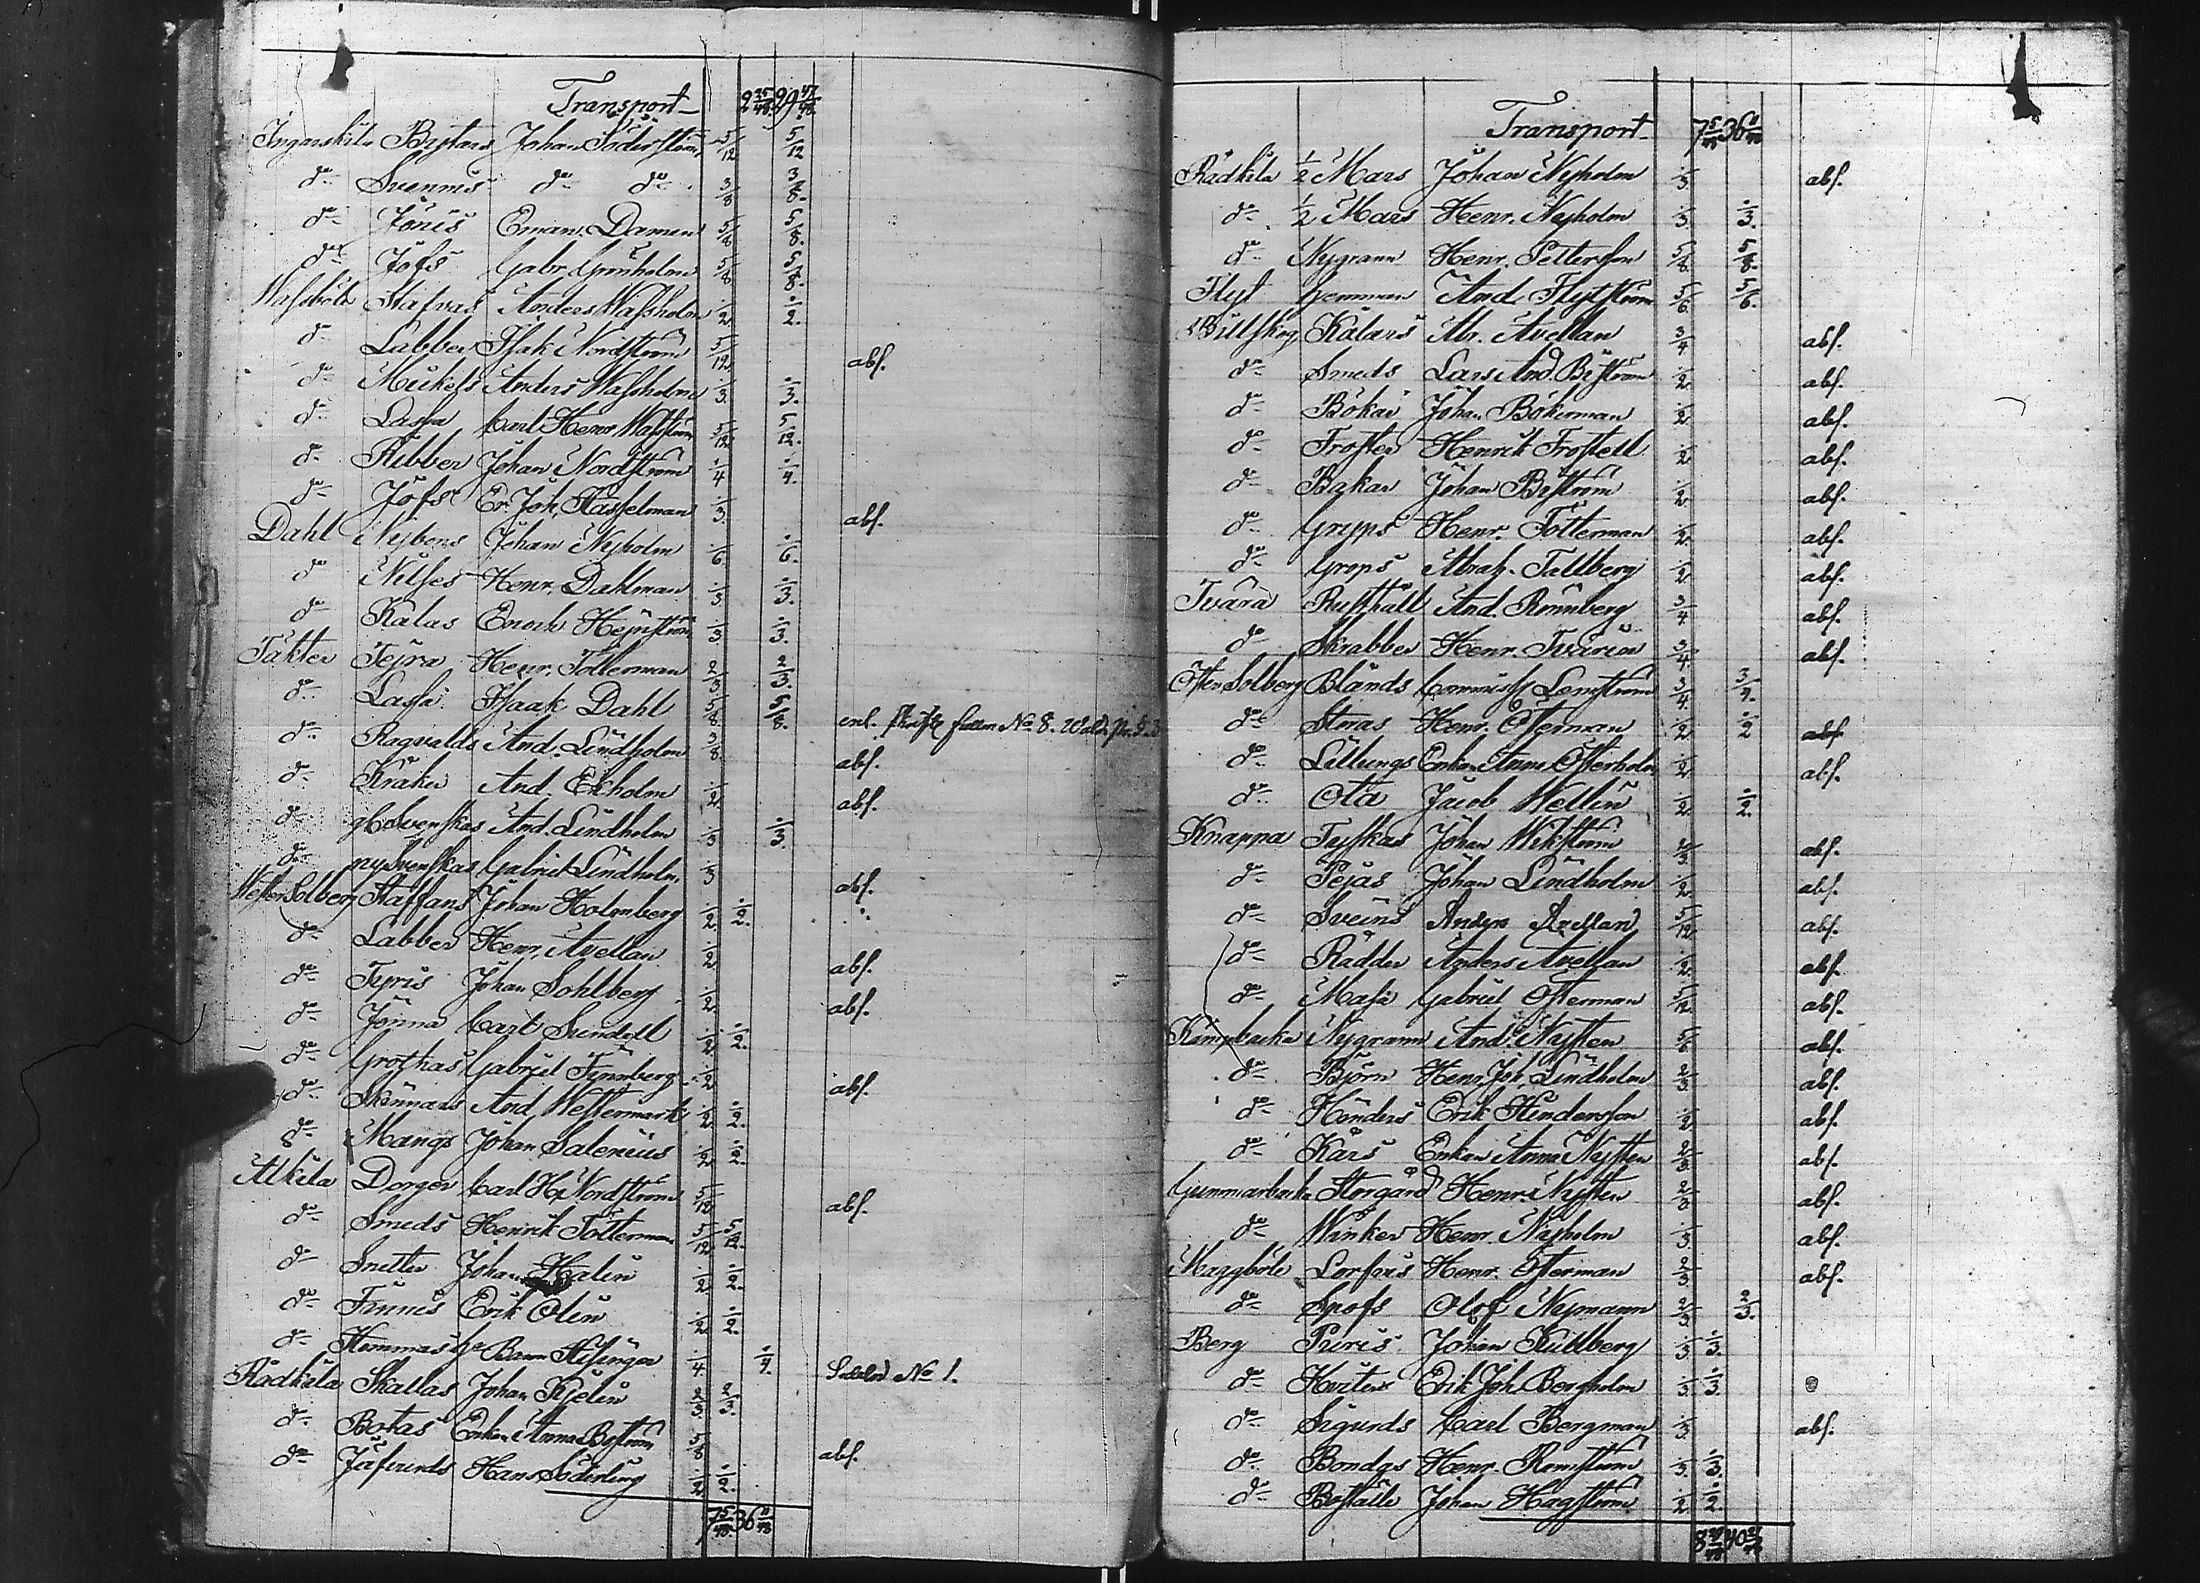 Transport 2 25/48 29 47/48
Ingarskila Bystars Johan Söderström 5/12 5/12
do Svennis do do 3/8 3/8.
do Jönis Eman. Damen 5/8 5/8.
do Jofs Gabr. Grönholm 5/8 5/8.
Wassböle Stafvas Anders Wassholm 1/2 1/2.
do Labber Isak Nordström 5/12 abs.
do Mickels Anders Wassholm 1/3. 1/3.
do Lassa Carl Henr. Wasström 5/12 5/12.
do Ribber Johan Nordström 1/4 1/4.
do Jofs Er. Joh. Hasselman 1/3. abs.
Dahl Nybons Johan Nyholm 1/6 1/6.
do Nilses Henr. Dahlman 1/3 1/3.
do Kålas Enoch Hejnström 1/3 1/3.
Täkter Tejra Henr. Totterman 2/3 2/3.
do Lassa Isaak Dahl 5/8 5/8. enl. No 8.
do Ragvalds And. Lindholm 3/8. abs.
do Kråka And. Ekholm 1/2. abs.
do gl. Svenskas And. Lindholm 1/3 1/3.
do ny Svenskas Gabriel Lindholm 1/3 abs.
Wester Solberg Staffans Johan Holmberg 1/2 1/2.
do Labbes Henr. Avellan 1/2 abs.
do Tyris Johan Sohlberg 1/2 abs.
do Jonna Carl Sundell 1/2 1/2.
do Grothas Gabriel Finnberg 1/2 abs.
do Skinnars And. Westermark 1/2 1/2.
do Mangs Johan Salenius 1/2 1/2.
Alkila Dorger Carl H. Nordström 5/12 abs.
do Smeds Henrik Totterman 5/12 5/12.
do Snetter Johan Halin 1/2 1/2.
do Finnis Erik Olin 1/2 1/2.
do Hemmas Baron Hisinger 1/4 1/4. No 1.
Rådkila Skallas Johan Kjelin 2/3 2/3.
do Botas Enkan Anna Boström 5/8 abs.
do Jäferents Hans Söderling 1/2 1/2.
7 5/48. 36 11/48
Transport 7 5/48 36 11/48
Rådkila 1/2 Mars Johan Nyholm 1/3. abs.
do. 1/2 Mars Henr. Nyholm 1/3. 1/3.
do Nygrann Henr. Pettersson 5/8. 5/8.
Flyt hemman And. Flytström 5/6. 5/6.
Billskog Kålars Abr. Avellan 3/4 abs.
do Smeds Lars And. Byström 1/2 abs.
do Bökar Johan Bökerman 1/2 abs.
do Froster Henrik Frostell 1/2 abs.
do Bakar Johan Byström 1/2 abs.
do Gryps Henr. Totterman 1/2 abs.
do Grops Abrah. Tallberg 1/2 abs.
Tvärä Rusthåll And. Rönnberg 3/4 abs.
do Skrabbes Henr. Tvärin 3/4 abs.
Öster Solberg Bländs Commiss. Lemström 3/4. 3/4.
do Stuas Henr. Österman 1/2 1/2 abs.
do Lällungs Enkan Anna Österholm 1/2 abs.
do Ota Jacob Wellin 1/2 1/2.
Knappa Tyskas Johan Wikström 1/3 abs.
do Pejas Johan Lindholm 1/2 abs.
do Sveins Anders Avellan 5/12 abs.
do Rådder Anders Avellan 1/2 abs.
do Masa Gabriel Österman 5/12. abs.
Kärrbacka Nygrann And. Nysten 5/6 abs.
do Björn Henr. Joh. Lindholm 2/3 abs.
do Hinders Erik Hindersson 1/2 abs.
do Kårs Enkan Anna Nysten 2/3 abs.
Gunnarbacka Storgård Henr. Nysten 2/3 abs.
do Winkes Henr. Nyholm 1/3. abs.
Maggböle Lorfars Henr. Österman 2/3 abs.
do Spofs Olof Nymann 2/3 2/3.
Berg Puris Johan Kullberg 1/3 1/3.
do Hviters Erik Joh. Bergholm 1/3 1/3.
do Sigurds Carl Bergman 1/3 abs.
do Bondes Henr. Romström 1/3. 1/3.
do Boställe Johan Hagström 1/2. 1/2.
8 29/48 40 21/48